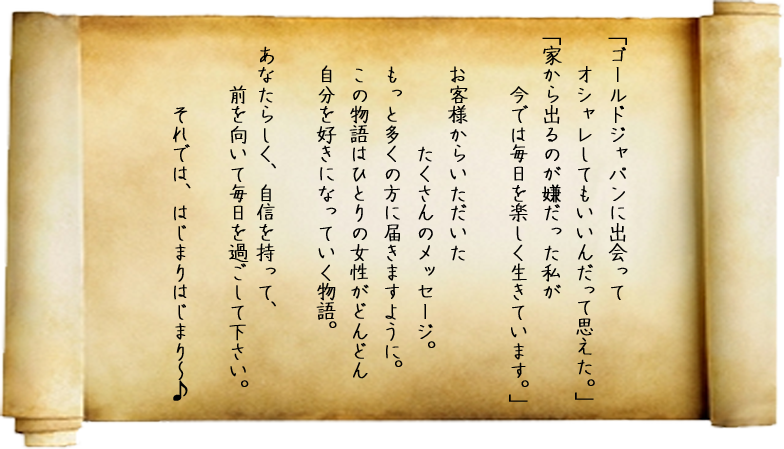 「ゴールドジャパンに出会って
オシャレしてもいいんだって思えた。」
「家から出るのが嫌だった私が
今では毎日を楽しく生きています。」
お客様からいただいた
たくさんのメッセージ。
もっと多くの方に届きますように。
この物語はひとりの女性がどんどん
自分を好きになっていく物語。
あなたらしく、自信を持って、
前を向いて毎日を過ごして下さい。
それでは、はじまりはじまり〜♪